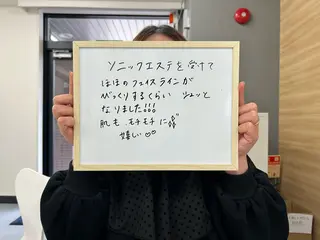 ソニックエステを受けて
ほほのフェイスラインが
びっくりするくらい シュッと
なりました!!!
肌も、モチモチに
嬉しい♡♡